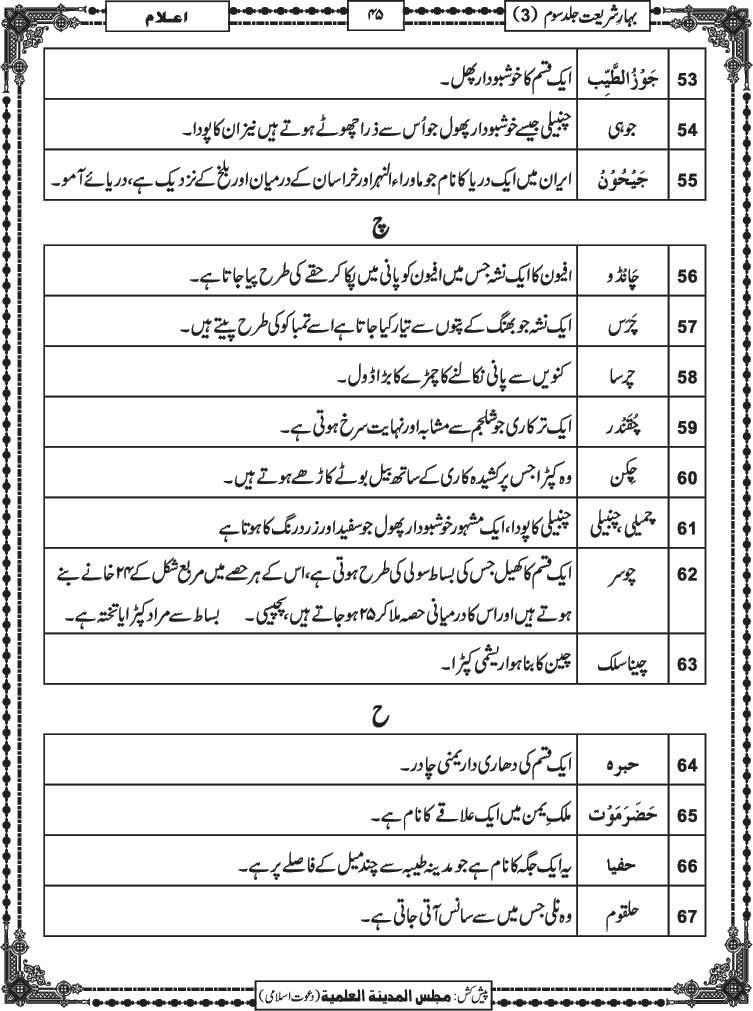 بہارِ شریعت جلد سوم (3)
۴۵
اعلام
53 جَوْزُالطَّیِّب ایک قسم کا خوشبودار پھل۔
54 جوہی چنبیلی جیسے خوشبودار پھول جو اُس سے ذرا چھوٹے ہوتے ہیں نیز ان کا پودا۔
55 جَیْحُوْنْ ایران میں ایک دریا کا نام جو ماوراء النہر اور خراسان کے درمیان اور بلخ کے نزدیک ہے، دریائے آمو۔
چ
56 چَانڈو افیون کا ایک نشہ جس میں افیون کو پانی میں پکا کر حقے کی طرح پیا جاتا ہے۔
57 چَرَس ایک نشہ جو بھنگ کے پتوں سے تیار کیا جاتا ہے اسے تمباکو کی طرح پیتے ہیں۔
58 چرسا کنویں سے پانی نکالنے کا چمڑے کا بڑا ڈول۔
59 چُقَنْدر ایک ترکاری جو شلجم سے مشابہ اور نہایت سرخ ہوتی ہے۔
60 چکن وہ کپڑا جس پر کشیدہ کاری کے ساتھ بیل بوٹے کاڑھے ہوتے ہیں۔
61 چمیلی، چنبیلی چنبیلی کا پودا، ایک مشہور خوشبودار پھول جو سفید اور زرد رنگ کا ہوتا ہے
62 چوسر ایک قسم کا کھیل جس کی بساط سولی کی طرح ہوتی ہے، اس کے ہر حصے میں مربع شکل کے ۲۴ خانے بنے
ہوتے ہیں اور اس کا درمیانی حصہ ملا کر ۲۵ ہو جاتے ہیں، پچیسی۔ بساط سے مراد کپڑا یا تختہ ہے۔
63 چینا سلک چین کا بنا ہوا ریشمی کپڑا۔
ح
64 حبرہ ایک قسم کی دھاری دار یمنی چادر۔
65 حَضَرَمَوْت ملکِ یمن میں ایک علاقے کا نام ہے۔
66 حفیا یہ ایک جگہ کا نام ہے جو مدینہ طیبہ سے چند میل کے فاصلے پر ہے۔
67 حلقوم وہ نلی جس میں سے سانس آتی جاتی ہے۔
پیش کش: مجلس المدینة العلمیة (دعوت اسلامی)